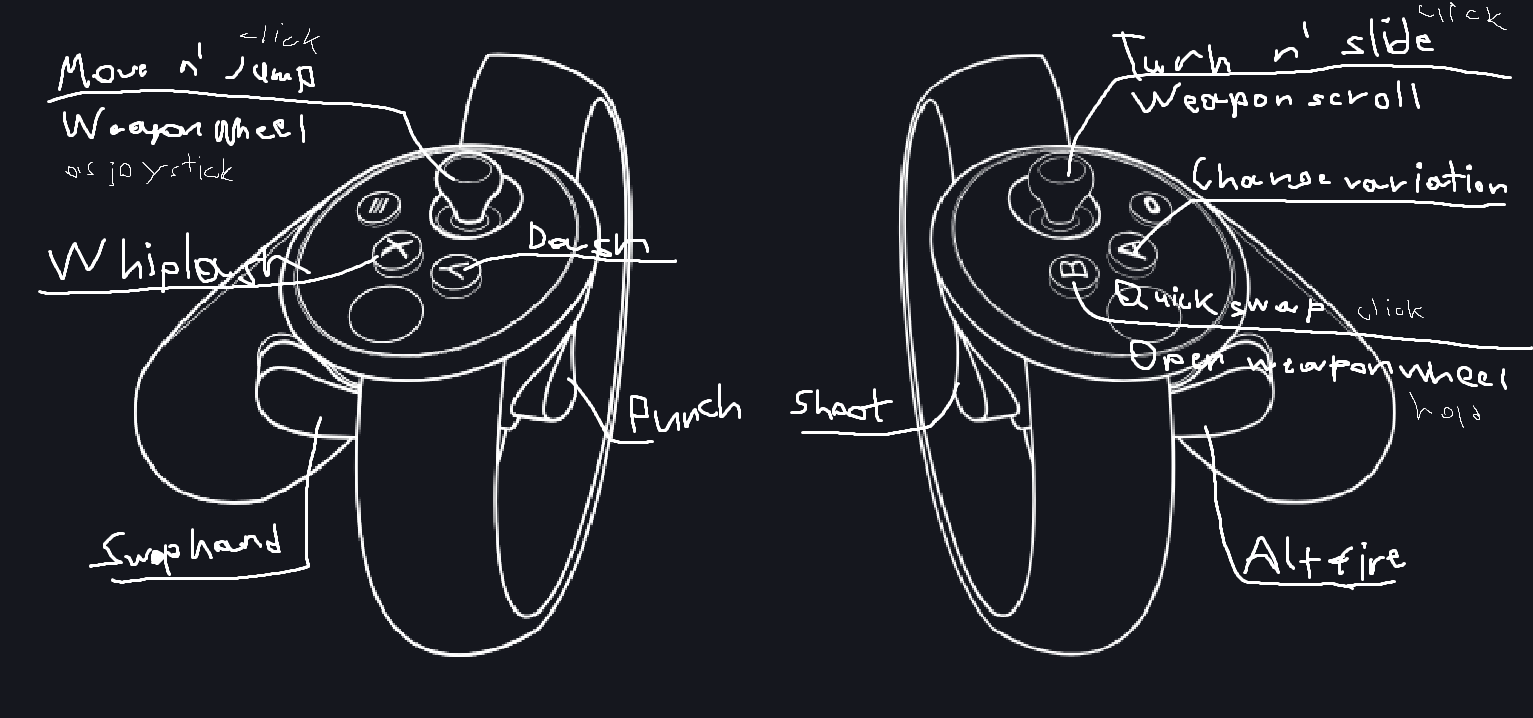 click
Move n' Jump
Weapon wheel
as joystick
Whiplash
X
Y
Dash
Punch
Swap hand
click
Turn n' slide
Weapon scroll
Change variation
A
B
Quick swap click
Open weapon wheel
hold
Shoot
Alt fire